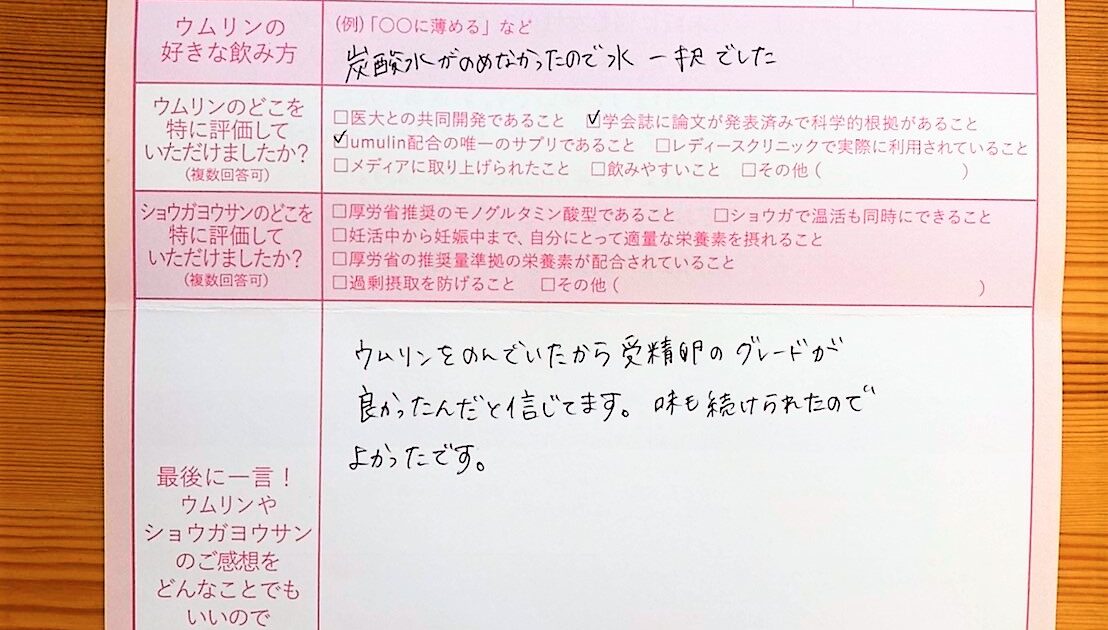 ウムリンの
好きな飲み方
(例)「〇〇に薄める」など
炭酸水がのめなかったので水 一択でした
ウムリンのどこを
特に評価して
いただけましたか?
(複数回答可)
□医大との共同開発であること ☑学会誌に論文が発表済みで科学的根拠があること
☑umulin配合の唯一のサプリであること □レディースクリニックで実際に利用されていること
□メディアに取り上げられたこと □飲みやすいこと □その他 ( )
ショウガヨウサンのどこを
特に評価して
いただけましたか?
(複数回答可)
□厚労省推奨のモノグルタミン酸型であること □ショウガで温活も同時にできること
□妊活中から妊娠中まで、自分にとって適量な栄養素を摂れること
□厚労省の推奨量準拠の栄養素が配合されていること
□過剰摂取を防げること □その他 ( )
最後に一言!
ウムリンや
ショウガヨウサン
のご感想を
どんなことでも
いいので
ウムリンをのんでいたから受精卵のグレードが
良かったんだと信じてます。味も続けられたので
よかったです。